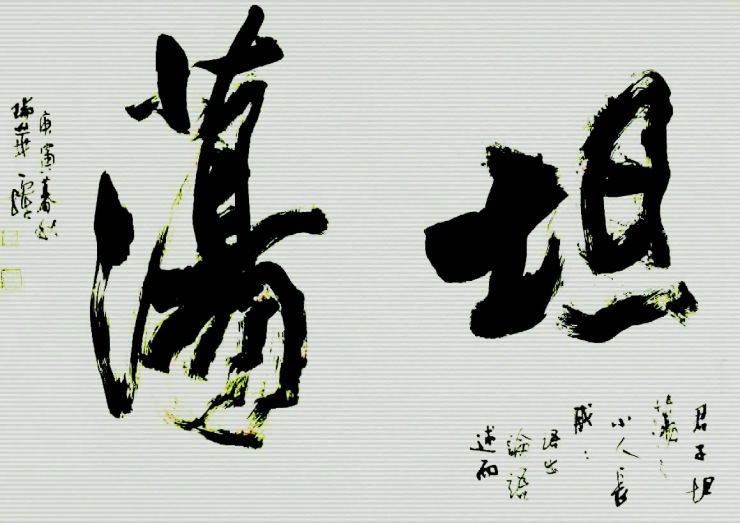 坦蕩
君子坦
蕩蕩
小人長
戚戚
語出
論語
述而
庚寅暮秋
瑞華